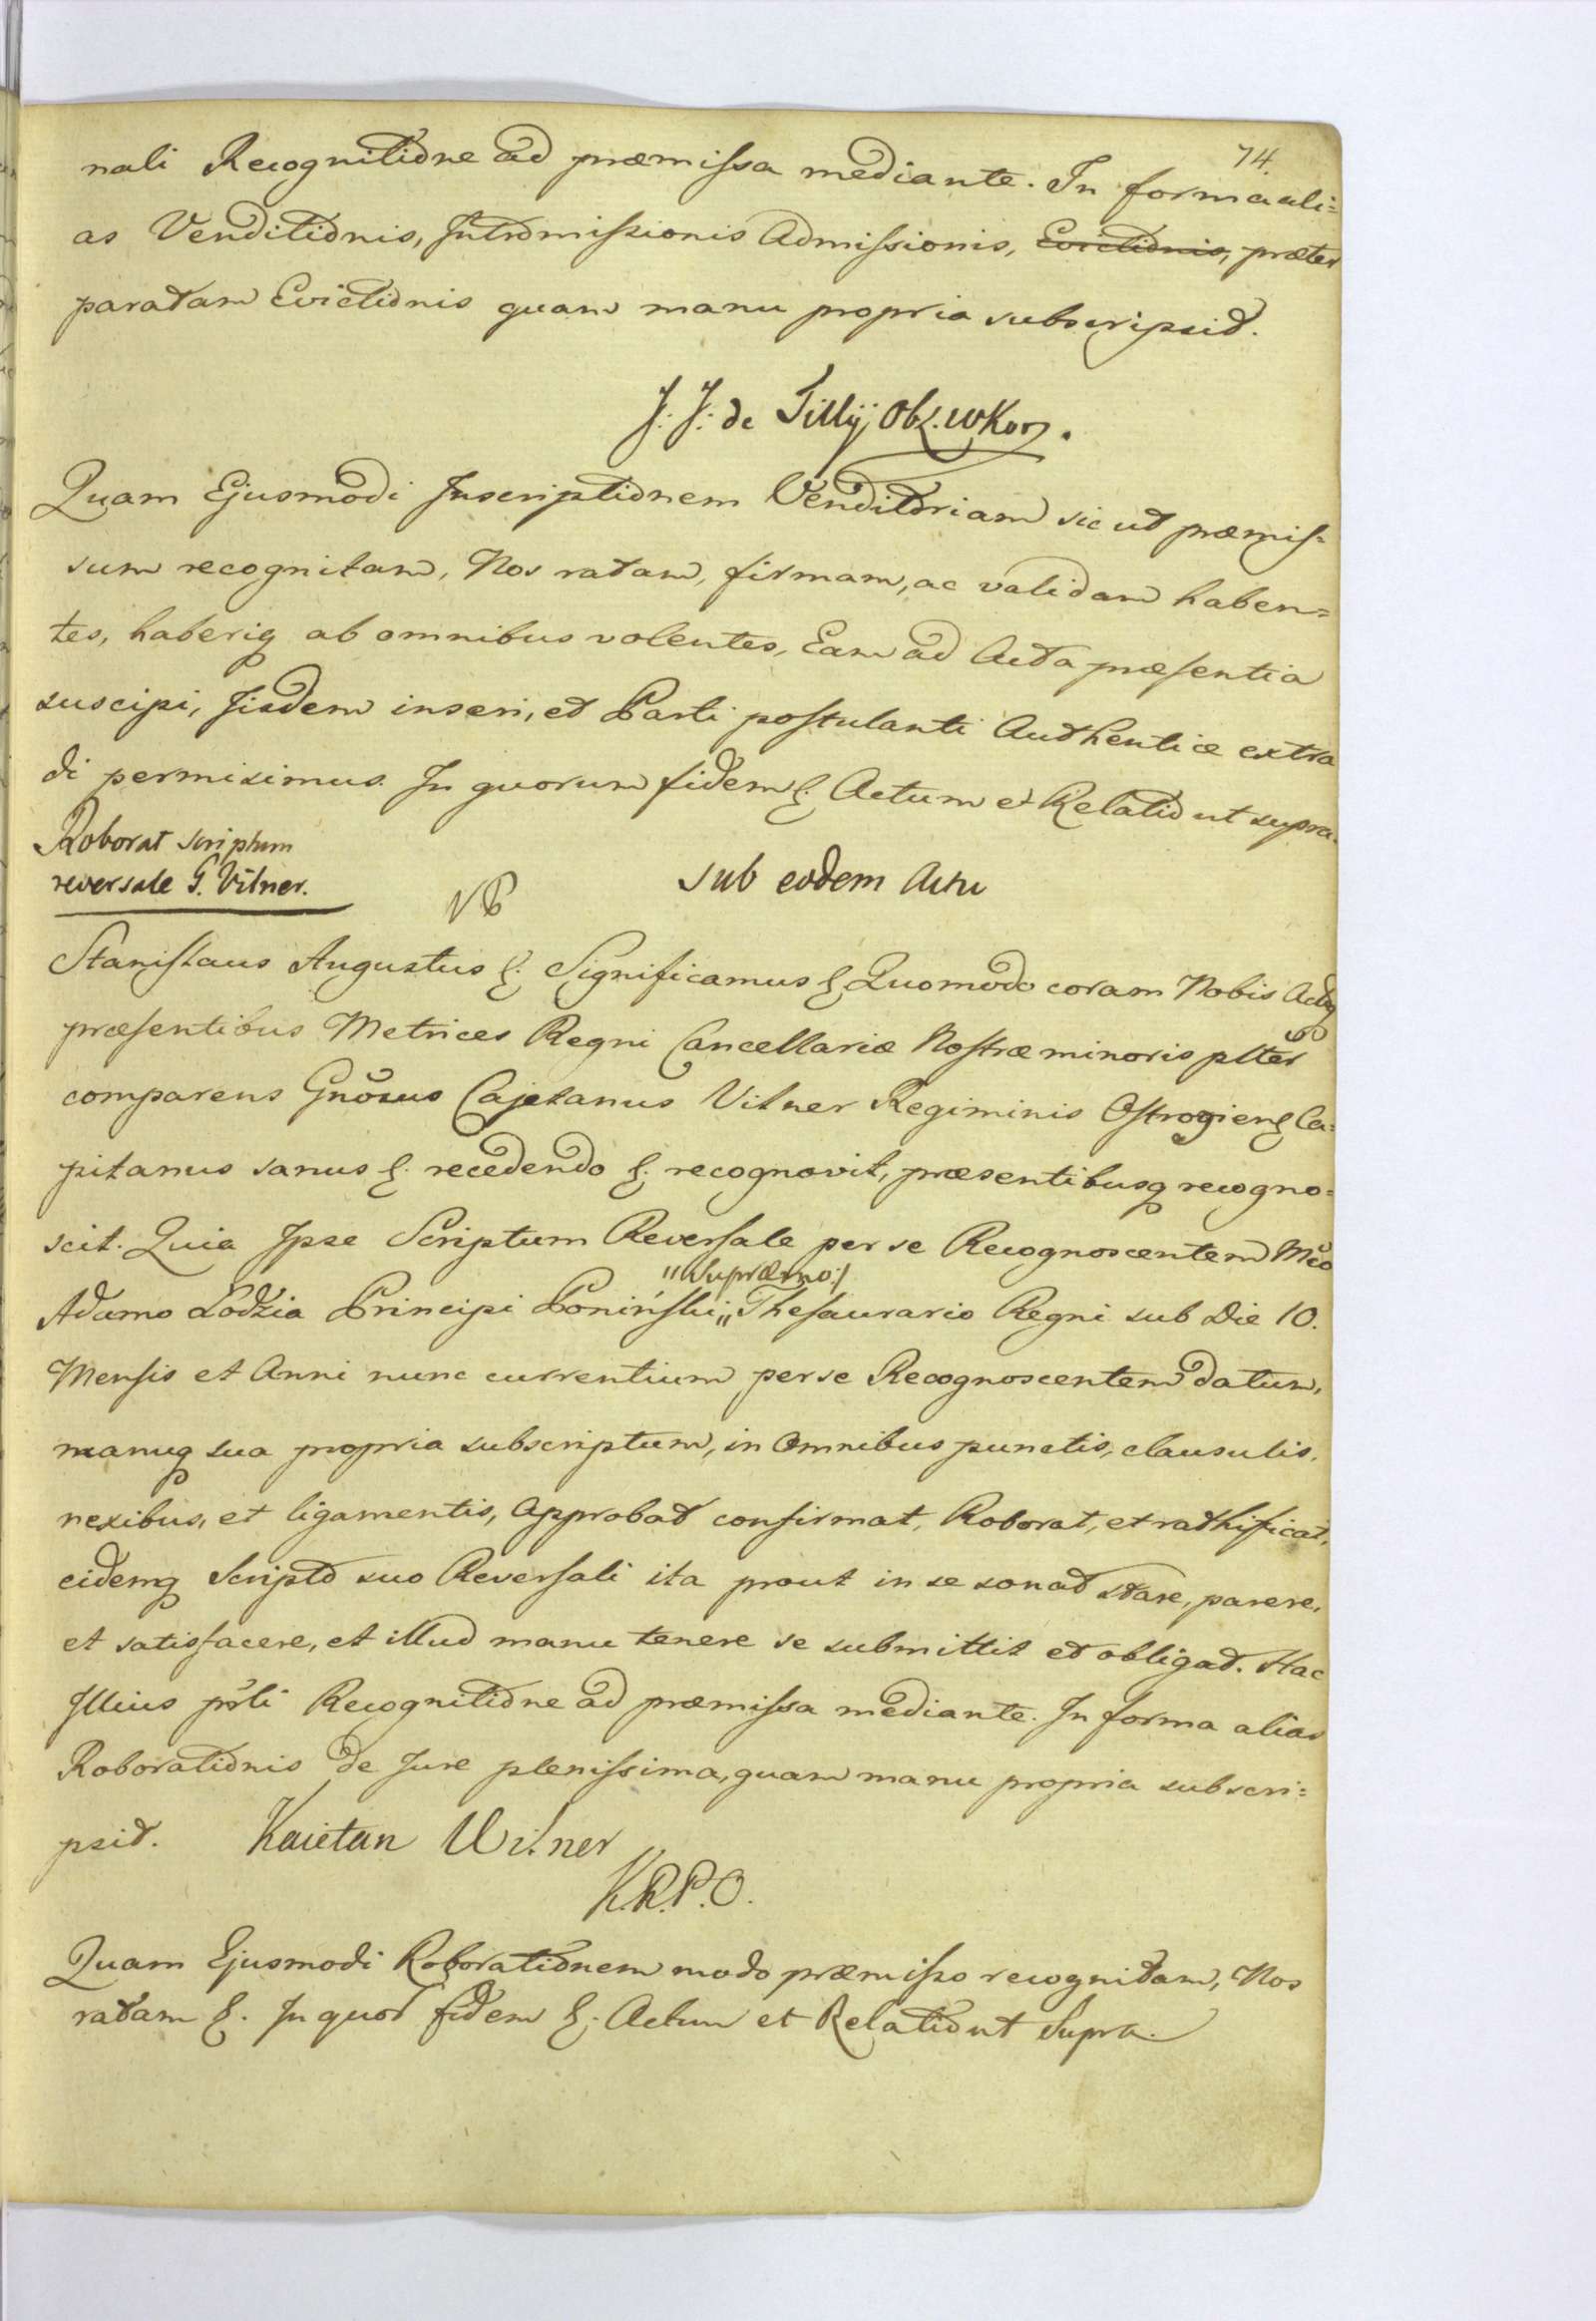 74.
nali Recognitione ad præmissa mediante. In forma ali=
as Venditionis, Intromissionis Admissionis, Evictionis, præter
paratam Evictionis quam manu propria subscripsit.
J: J: de Tillÿ Obz. WKor.
Quam Ejusmodi Inscriptionem Venditoriam sic ut præmis=
sum recognitam, Nos ratam, firmam, ac validam haben=
tes, haberiq ab omnibus volentes, Eam ad Acta præsentia
suscipi, Iisdem inseri, et Parti postulanti Authentice extra
di permisimus. In quorum fidem &. Actum et Relatio ut supra.
Roborat scriptum
reversale G. Vitner.
NB
Sub eodem Actu
Stanislaus Augustus &. Significamus & Quomodo coram Nobis Actisq
præsentibus Metrices Regni Cancellariæ Nostræ minoris plter
comparens Gnosus Cajetanus Vitner Regiminis Ostrogien& Ca=
pitanus sanus &. recedendo &. recognovit, præsentibusq recogno=
scit. Quia Ipse Scriptum Reversale per se Recognoscentem Mco
"Supræmo:/
Adamo Lodzia Principi Poniński,, Thesaurario Regni sub Die 10.
Mensis et Anni nunc currentium per se Recognoscentem datum,
manuq sua propria subscriptum, in Omnibus punctis, clausulis,
nexibus, et ligamentis, Approbat confirmat, Roborat, et rathificat,
eidemq Scripto suo Reversali ita prout in se sonat stare, parere,
et satisfacere, et illud manu tenere se submittit et obligat. Hac
Illius prli Recognitione ad præmissa mediante. In forma alias
Roborationis de Jure plenissima, quam manu propria subscri=
psit. Kaietan Witner
K.R.P.O.
Quam Ejusmodi Roborationem modo præmisso recognitam, Nos
ratam &. In quor fidem &. Actum et Relatio ut Supra.